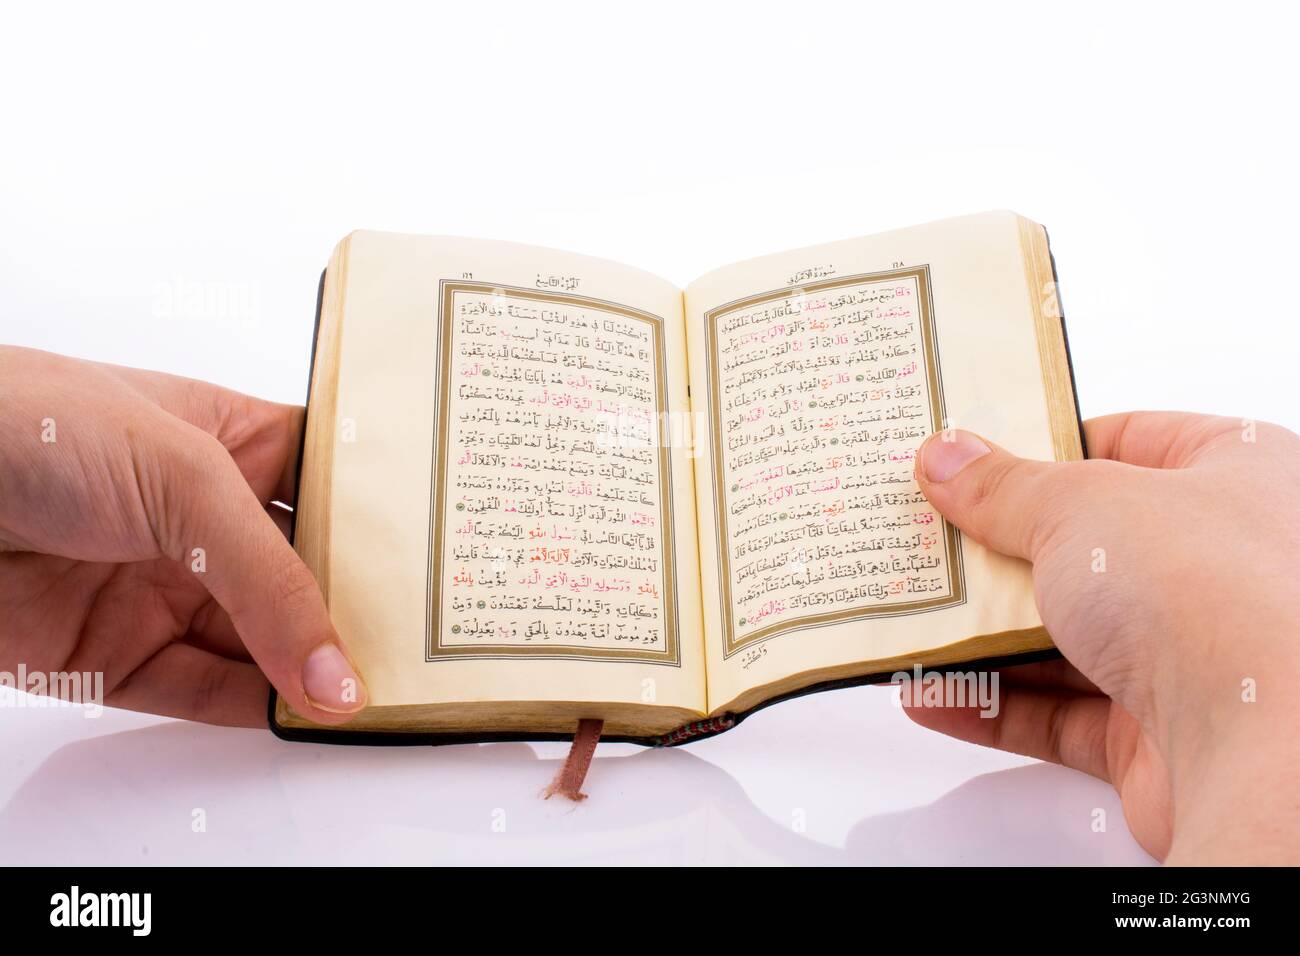 سُورَةُ الْاَعْرَافِ ١٦٨
وَلَمَّا رَجَعَ مُوسٰٓى اِلٰى قَوْمِه۪ غَضْبَانَ اَسِفًا قَالَ بِئْسَمَا خَلَفْتُمُون۪ي
مِنْ بَعْد۪ي اَعَجِلْتُمْ اَمْرَ رَبِّكُمْ وَاَلْقَى الْاَلْوَاحَ وَاَخَذَ بِرَأْسِ
اَخ۪يهِ يَجُرُّهُٓ اِلَيْهِ قَالَ ابْنَ اُمَّ اِنَّ الْقَوْمَ اسْتَضْعَفُون۪ي
وَكَادُوا يَقْتُلُونَن۪ي فَلَا تُشْمِتْ بِيَ الْاَعْدَٓاءَ وَلَا تَجْعَلْن۪ي مَعَ
الْقَوْمِ الظَّالِم۪ينَ قَالَ رَبِّ اغْفِرْ ل۪ي وَلِاَخ۪ي وَاَدْخِلْنَا ف۪ي
رَحْمَتِكَ وَاَنْتَ اَرْحَمُ الرَّاحِم۪ينَ اِنَّ الَّذ۪ينَ اتَّخَذُوا الْعِجْلَ
سَيَنَالُهُمْ غَضَبٌ مِنْ رَبِّهِمْ وَذِلَّةٌ فِي الْحَيٰوةِ الدُّنْيَا
وَكَذٰلِكَ نَجْزِي الْمُفْتَر۪ينَ وَالَّذ۪ينَ عَمِلُوا السَّيِّـَٔاتِ ثُمَّ تَابُوا
بَعْدِهَا وَاٰمَنُٓوا اِنَّ رَبَّكَ مِنْ بَعْدِهَا لَغَفُورٌ رَح۪يمٌ
سَكَتَ عَنْ مُوسَى الْغَضَبُ اَخَذَ الْاَلْوَاحَ وَف۪ي نُسْخَتِهَا
وَرَحْمَةٌ لِلَّذ۪ينَ هُمْ لِرَبِّهِمْ يَرْهَبُونَ وَاخْتَارَ مُوسٰى
قَوْمَهُ سَبْع۪ينَ رَجُلًا لِم۪يقَاتِنَا فَلَمَّٓا اَخَذَتْهُمُ الرَّجْفَةُ قَالَ
رَبِّ لَوْ شِئْتَ اَهْلَكْتَهُمْ مِنْ قَبْلُ وَاِيَّايَ اَتُهْلِكُنَا بِمَا فَعَلَ
السُّفَهَٓاءُ مِنَّا اِنْ هِيَ اِلَّا فِتْنَتُكَ تُضِلُّ بِهَا مَنْ تَشَٓاءُ وَتَهْد۪ي
مَنْ تَشَٓاءُ اَنْتَ وَلِيُّنَا فَاغْفِرْ لَنَا وَارْحَمْنَا وَاَنْتَ خَيْرُ الْغَافِر۪ينَ
وَاكْتُبْ
١٦٩ اَلْجُزْءُ التَّاسِعُ
وَاكْتُبْ لَنَا ف۪ي هٰذِهِ الدُّنْيَا حَسَنَةً وَفِي الْاٰخِرَةِ
اِنَّا هُدْنَٓا اِلَيْكَ قَالَ عَذَاب۪ٓي اُص۪يبُ بِه۪ مَنْ اَشَٓاءُ
وَرَحْمَت۪ي وَسِعَتْ كُلَّ شَيْءٍ فَسَاَكْتُبُهَا لِلَّذ۪ينَ يَتَّقُونَ
وَيُؤْتُونَ الزَّكٰوةَ وَالَّذ۪ينَ هُمْ بِاٰيَاتِنَا يُؤْمِنُونَ اَلَّذ۪ينَ
يَتَّبِعُونَ الرَّسُولَ النَّبِيَّ الْاُمِّيَّ الَّذ۪ي يَجِدُونَهُ مَكْتُوبًا
عِنْدَهُمْ فِي التَّوْرٰيةِ وَالْاِنْج۪يلِ يَأْمُرُهُمْ بِالْمَعْرُوفِ
وَيَنْهٰيهُمْ عَنِ الْمُنْكَرِ وَيُحِلُّ لَهُمُ الطَّيِّبَاتِ وَيُحَرِّمُ
عَلَيْهِمُ الْخَبَٓائِثَ وَيَضَعُ عَنْهُمْ اِصْرَهُمْ وَالْاَغْلَالَ الَّت۪ي
كَانَتْ عَلَيْهِمْ فَالَّذ۪ينَ اٰمَنُوا بِه۪ وَعَزَّرُوهُ وَنَصَرُوهُ
وَاتَّبَعُوا النُّورَ الَّذ۪ٓي اُنْزِلَ مَعَهُٓ اُولٰٓئِكَ هُمُ الْمُفْلِحُونَ
قُلْ يَٓا اَيُّهَا النَّاسُ اِنّ۪ي رَسُولُ اللّٰهِ اِلَيْكُمْ جَم۪يعًا الَّذ۪ي
لَهُ مُلْكُ السَّمٰوَاتِ وَالْاَرْضِ لَٓا اِلٰهَ اِلَّا هُوَ يُحْي۪ي وَيُم۪يتُ فَاٰمِنُوا
بِاللّٰهِ وَرَسُولِهِ النَّبِيِّ الْاُمِّيِّ الَّذ۪ي يُؤْمِنُ بِاللّٰهِ
وَكَلِمَاتِه۪ وَاتَّبِعُوهُ لَعَلَّكُمْ تَهْتَدُونَ وَمِنْ
قَوْمِ مُوسٰٓى اُمَّةٌ يَهْدُونَ بِالْحَقِّ وَبِه۪ يَعْدِلُونَ
alamy
Image ID: 2G3NNYG
www.alamy.com